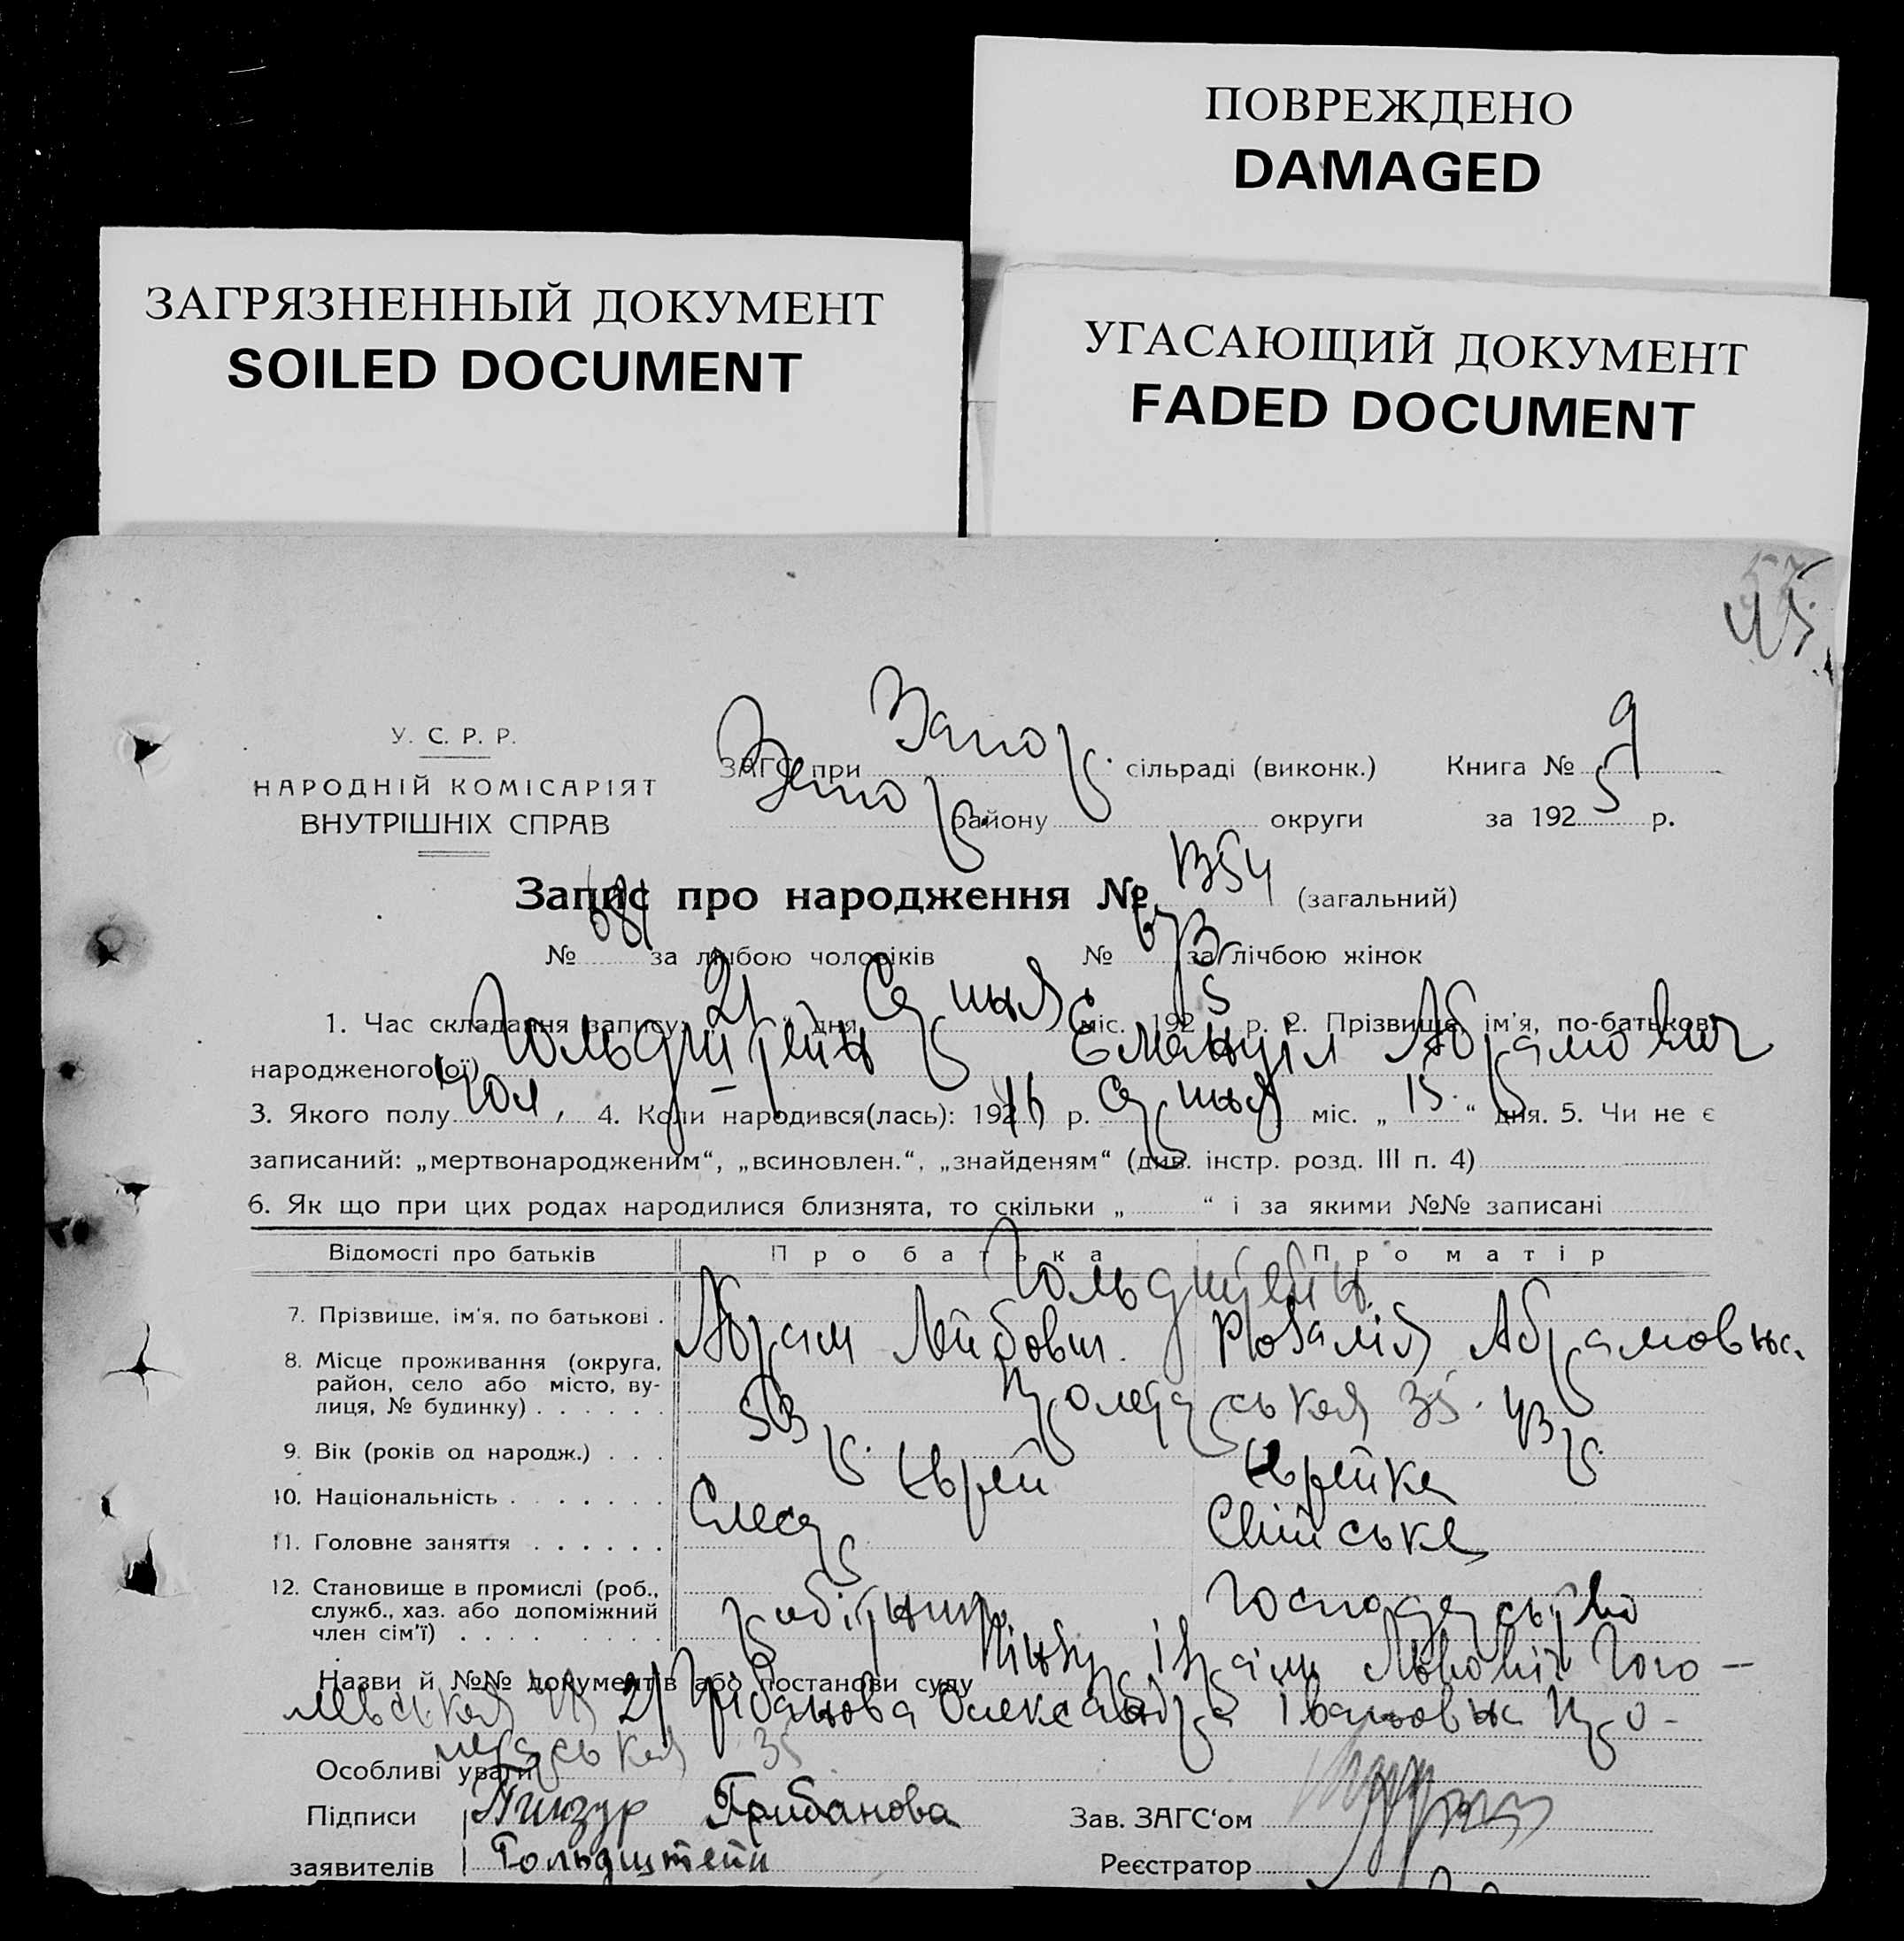 ПОВРЕЖДЕНО
DAMAGED
ЗАГРЯЗНЕННЫЙ ДОКУМЕНТ
SOILED DOCUMENT
УГАСАЮЩИЙ ДОКУМЕНТ
FADED DOCUMENT
45.
У. С. Р. Р.
НАРОДНІЙ КОМІСАРІЯТ
ВНУТРІШНІХ СПРАВ
ЗАГС при Запор. сільраді (виконк.) Книга № 9
Запор. району округи за 1925 р.
Запис про народження № 1354 (загальний)
№ 681 за лічбою чоловіків № 673 за лічбою жінок
1. Час складання запису: 21 дня Серпня міс. 1925 р. 2. Прізвище, ім'я, по-батькові
народженого(ої) Гольдштейн Емануіл Абрамович
3. Якого полу чол, 4. Коли народився(лась): 192 р. Серпня міс. „ 15 “ дня. 5. Чи не є
записаний: „мертвонародженим“, „всиновлен.“, „знайденям“ (див. інстр. розд. III п. 4)
6. Як що при цих родах народилися близнята, то скільки „ “ і за якими №№ записані
Відомості про батьків Про батька Про матір
Гольдштейн
7. Прізвище, ім'я, по батькові . Абрам Лейбович. Розалія Абрамовна
8. Місце проживання (округа,
район, село або місто, ву-
лиця, № будинку) . . . . . . Пролетарськая 35.
9. Вік (років од народж.) . . . 53 р. 43 р.
10. Національність . . . . . . . Єврей Єврейка
11. Головне заняття . . . . . . Слесар Хатнє
12. Становище в промислі (роб.,
служб., хаз. або допоміжний
член сім'ї) . . . . . робітник господарство
Назви й №№ документів або постанови суду Пінзур Ізраїль Львович Гого-
левськая 2) Грібанова Олександра Івановна Про-
Особливі уваги летарськая 35
Підписи Пинзур Грибанова Зав. ЗАГС'ом
заявителів Гольдштейн Реєстратор